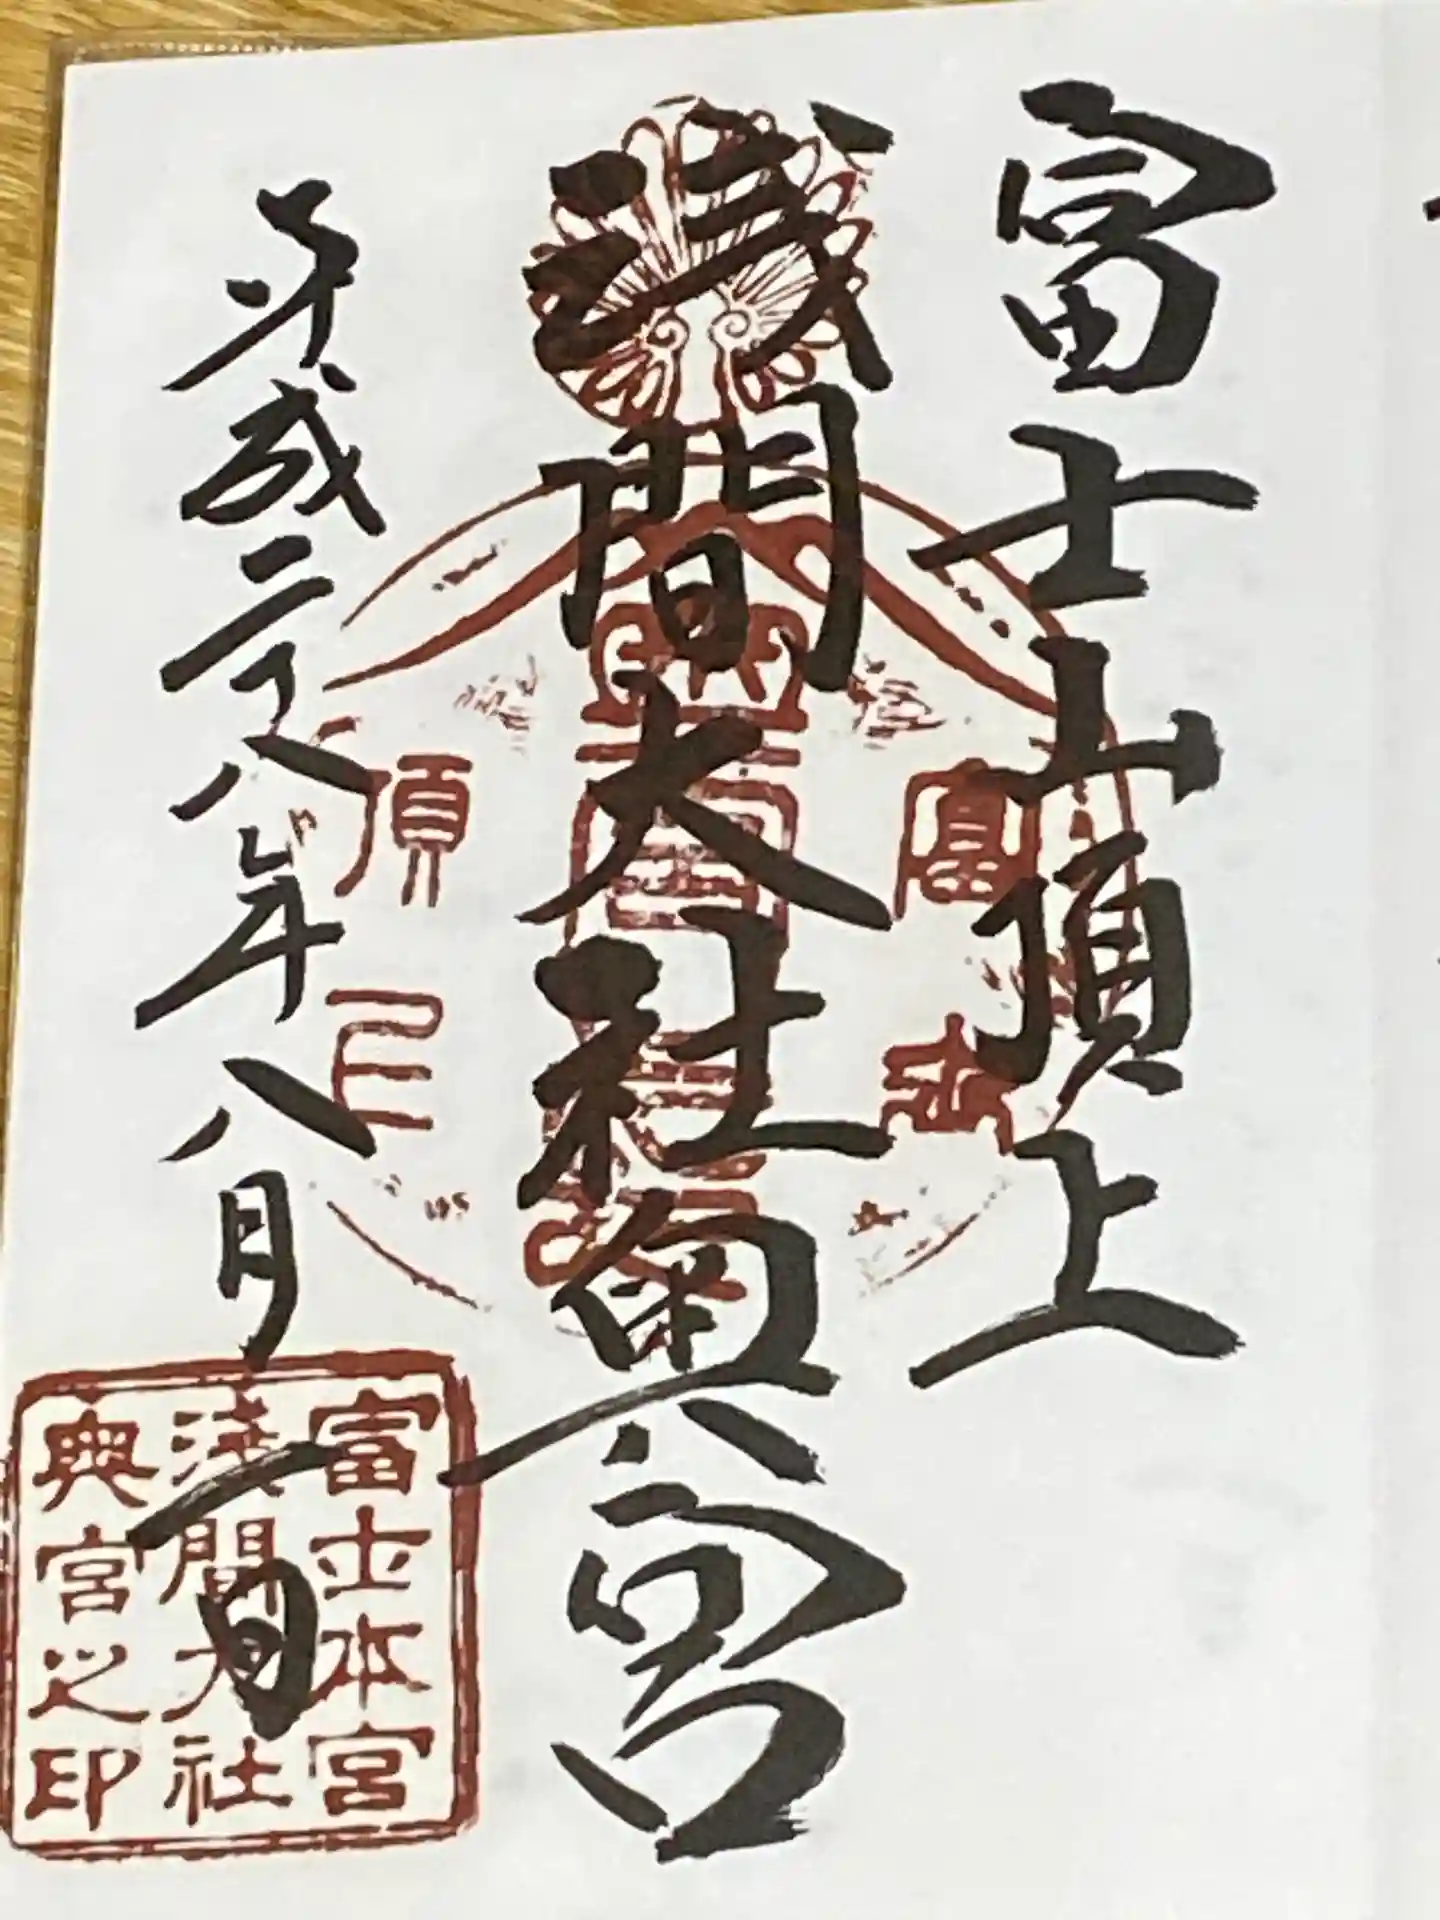 富士山頂上
浅間大社奥宮
平成二十八年八月一日
富士
頂上
富士本宮
浅間大社
奥宮之印